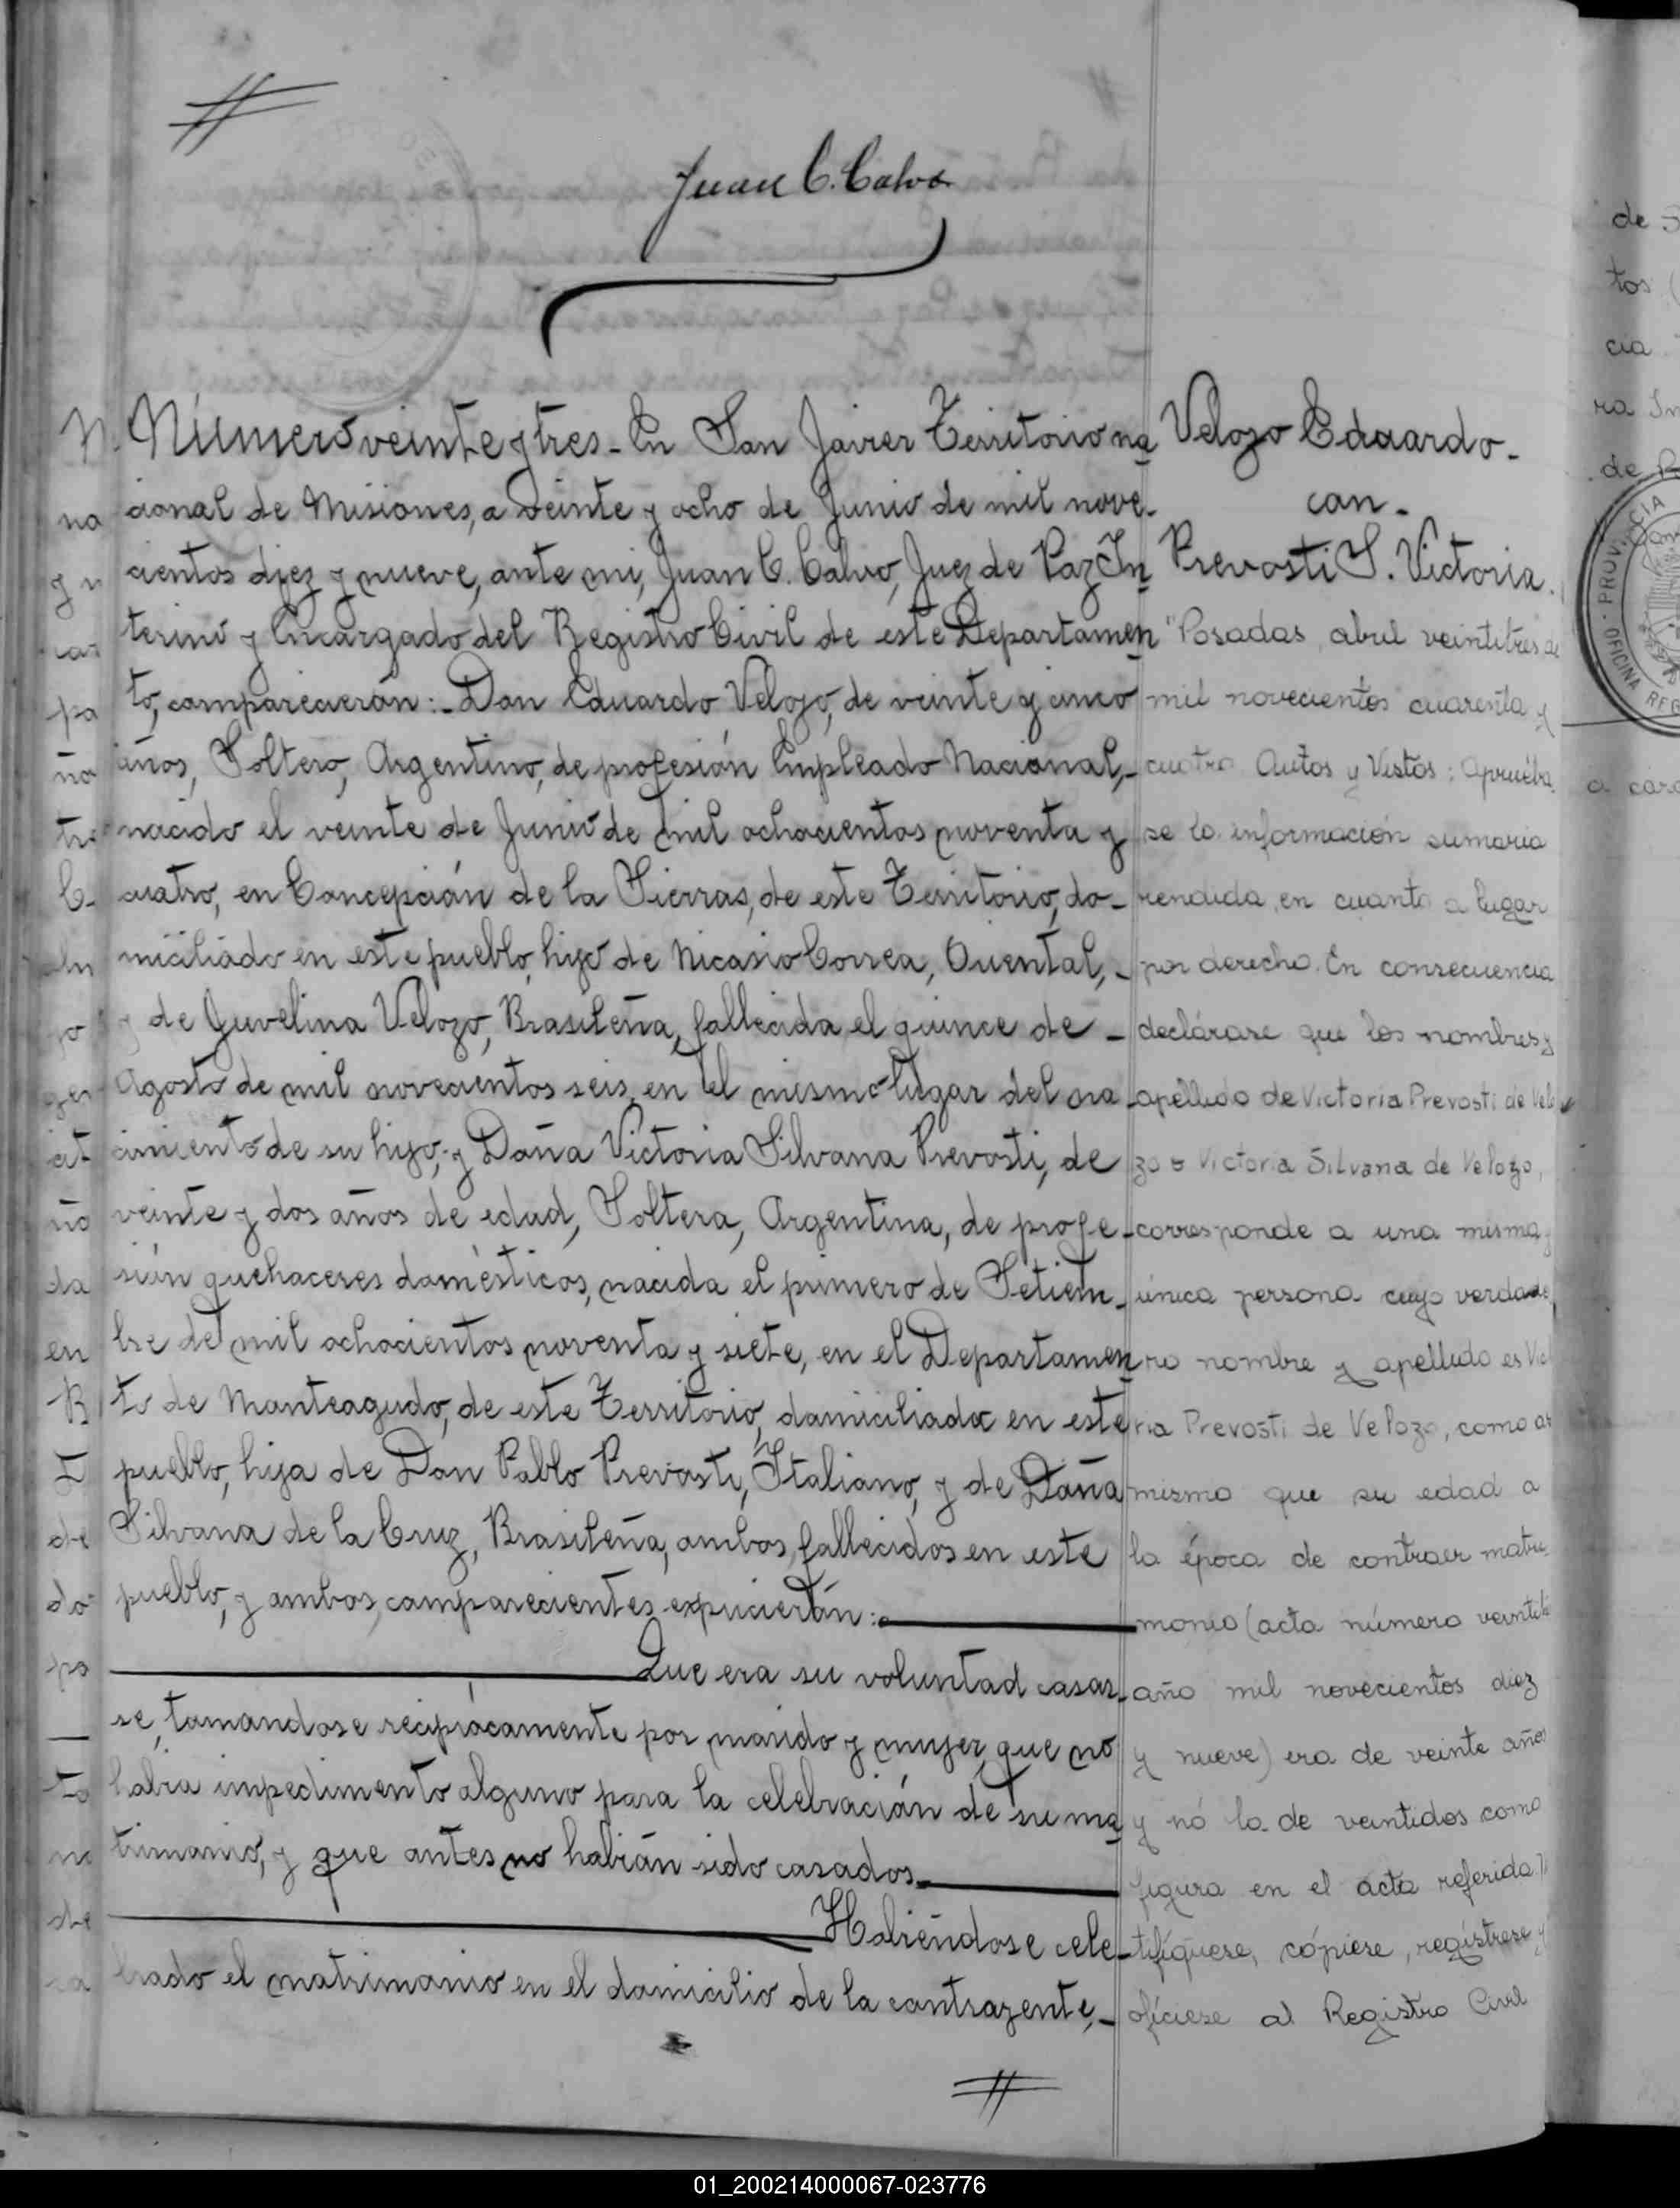 Juan C. Calvo
Número veinte y tres - En San Javier Territorio na
cional de Misiones, a veinte y ocho de Junio de mil nove-
cientos diez y nueve, ante mi, Juan C. Calvo, Juez de Paz In
terino y Encargado del Registro Civil de este Departamen
to, comparecierón:- Don Eduardo Velozo, de veinte y cinco
años, Soltero, Argentino, de profesión Empleado Nacional,-
nacido el veinte de Junio de mil ochocientos noventa y
cuatro, en Concepción de la Sierras, de este Territorio, do-
miciliado en este pueblo, hijo de Nicasio Correa, Oriental,-
y de Juvelina Velozo, Brasileña, fallecida el quince de -
Agosto de mil novecientos seis, en el mismo lugar del na
cimiento de su hijo; y Doña Victoria Silvana Prevosti, de
veinte y dos años de edad, Soltera, Argentina, de profe-
sión quehaceres domésticos, nacida el primero de Setiem-
bre de mil ochocientos noventa y siete, en el Departamen
to de Monteagudo, de este Territorio, domiciliada en este
pueblo, hija de Don Pablo Prevosti, Italiano, y de Doña
Silvana de la Cruz, Brasileña, ambos fallecidos en este
pueblo, y ambos comparecientes expucierón:
Que era su voluntad casar-
se, tomandose recíprocamente por marido y mujer, que no
habia impedimento alguno para la celebración de su ma
trimonio, y que antes no habián sido casados.
Habiéndose cele-
brado el matrimonio en el domicilio de la contrayente,-
Velozo Eduardo.-
con.-
Prevosti S. Victoria.
"Posadas, abril veintitres de
mil novecientos cuarenta y
cuatro. Autos y Vistos: Apruéba
se la información sumaria
rendida, en cuanto a lugar
por derecho. En consecuencia
declárase que los nombres y
apellido de Victoria Prevosti de Velo
zo o Victoria Silvana de Velozo,
corresponde a una misma y
única persona cuyo verdade
ro nombre y apellido es Vic
ria Prevosti de Velozo, como as
mismo que su edad a
la época de contraer matri-
monio (acta número veintitr
año mil novecientos diez
y nueve) era de veinte años
y nó la de veintidos como
figura en el acta referida.
tifíquese, cópiese, regístrese y
ofíciese al Registro Civil
de
tos
cia
ra
de
a
PROVINCIA
OFICINA REG
01_200214000067-023776